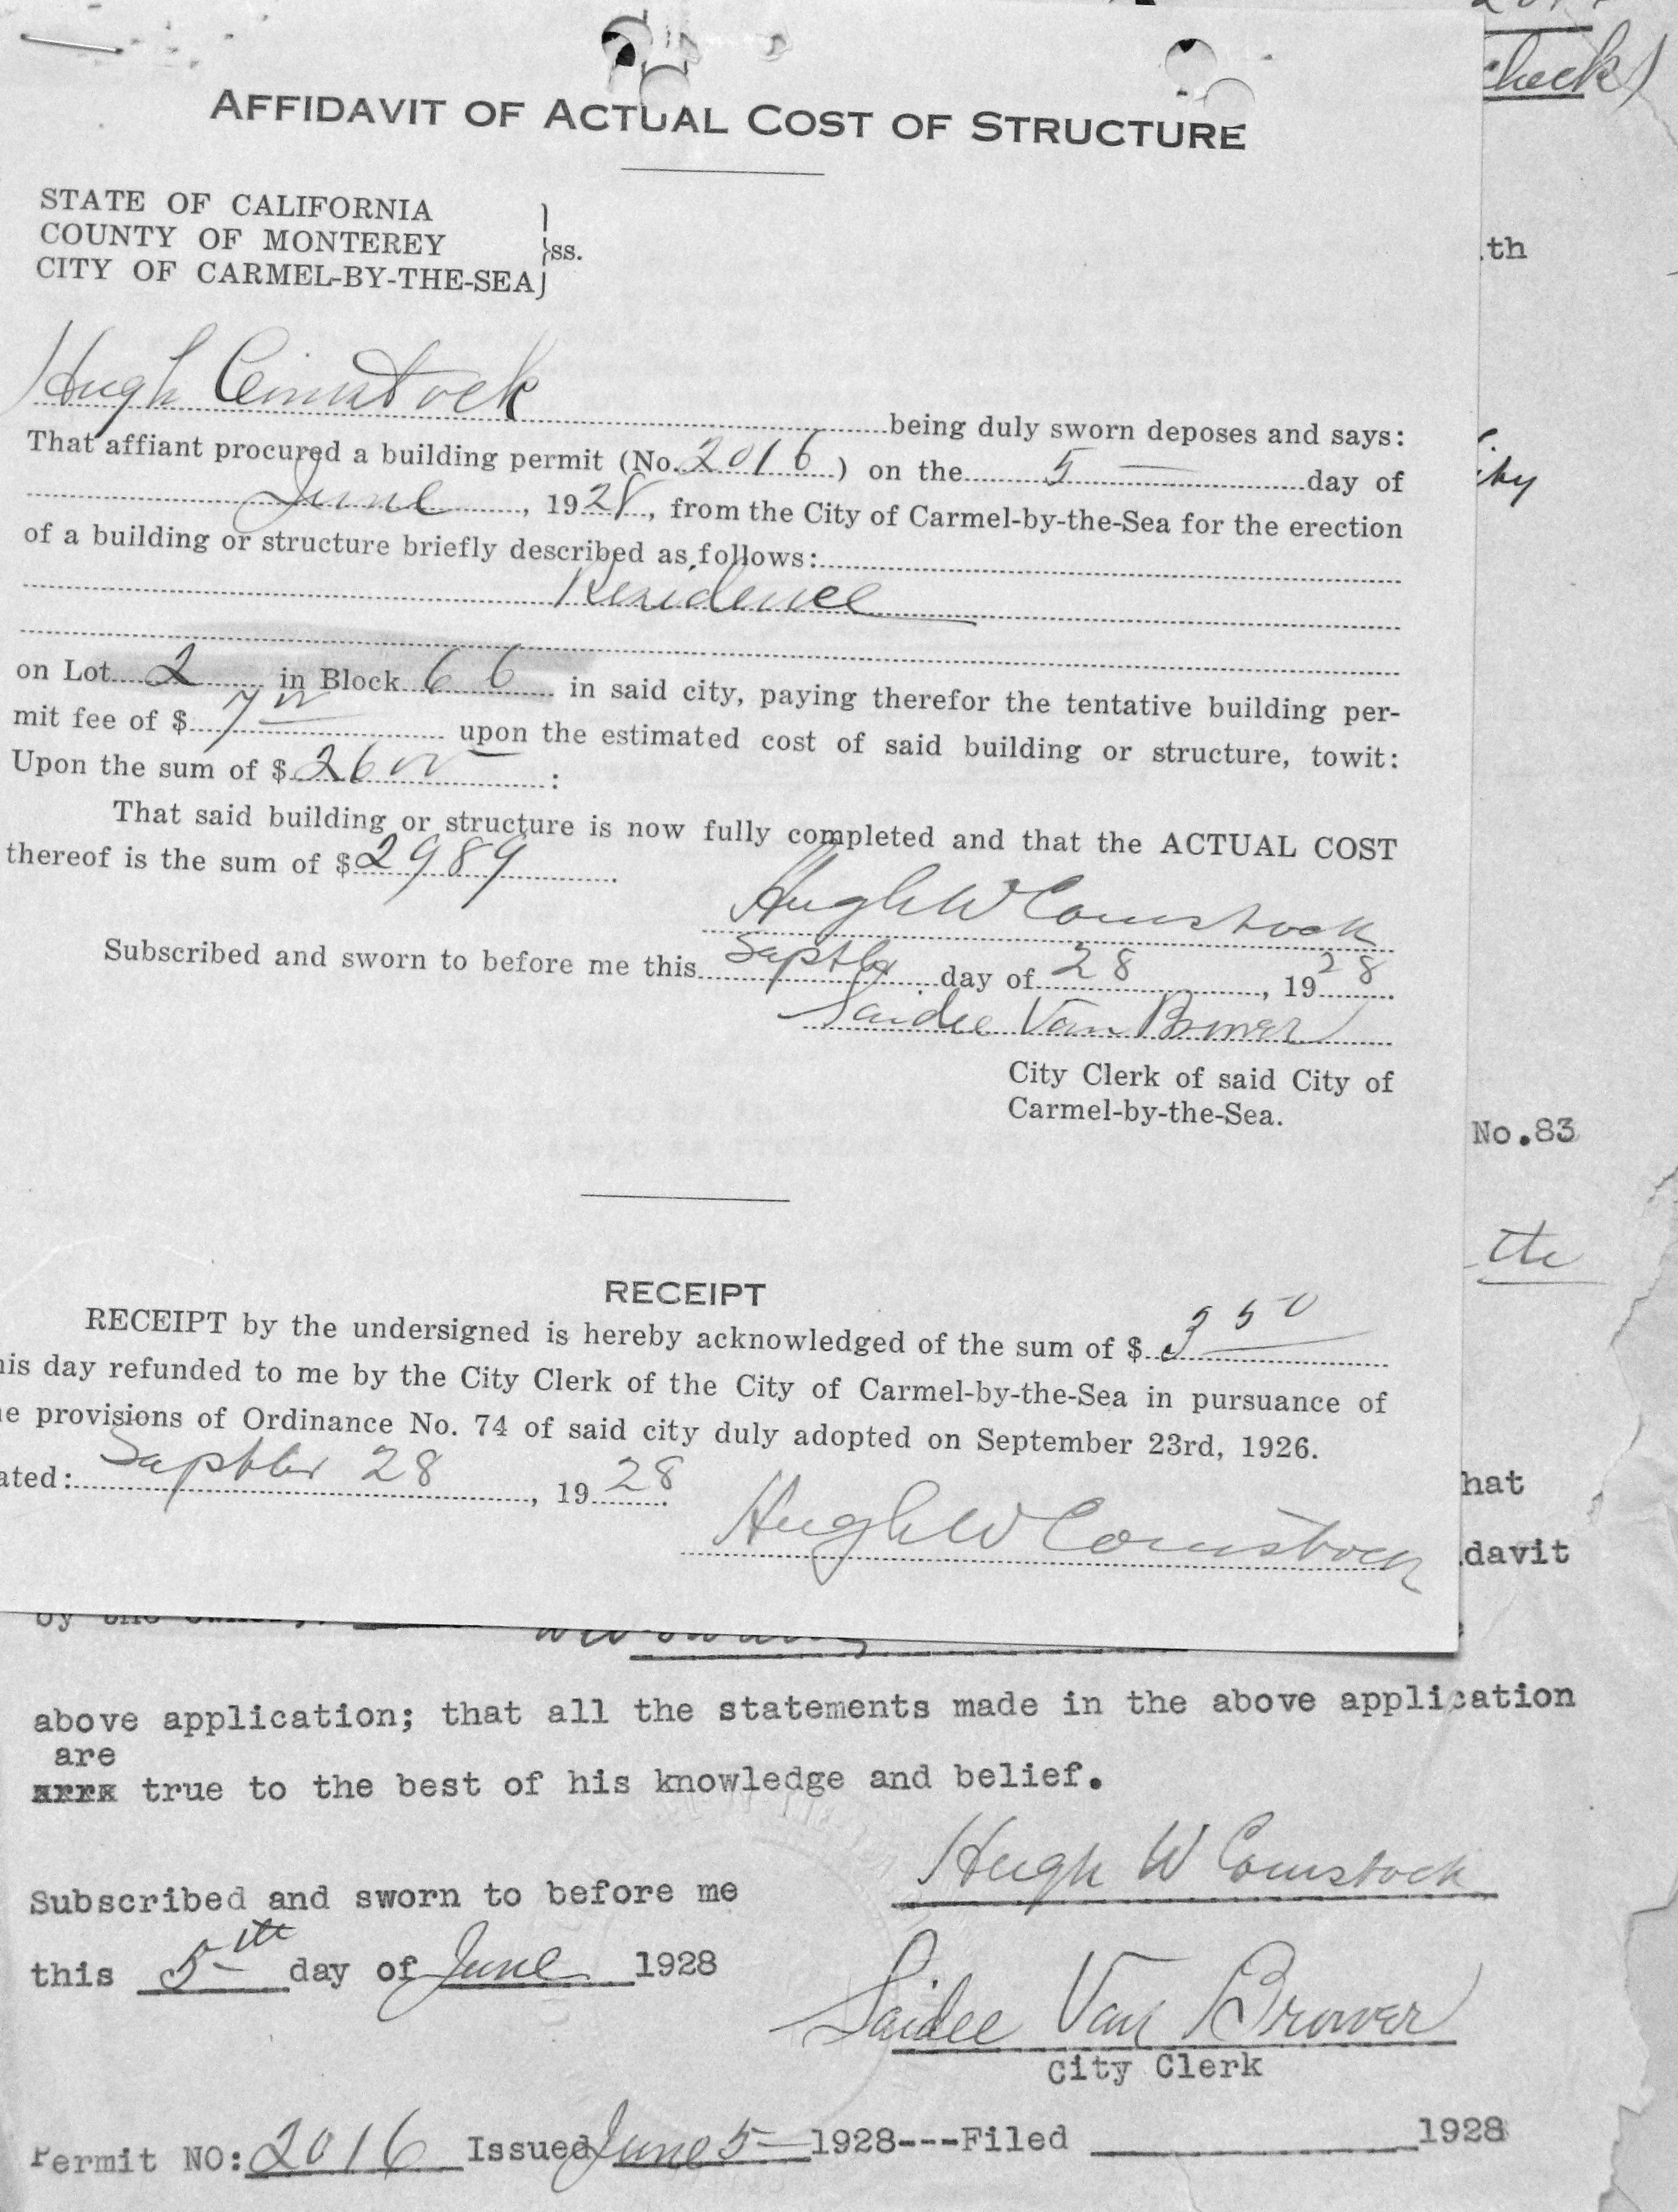 check)
AFFIDAVIT OF ACTUAL COST OF STRUCTURE
STATE OF CALIFORNIA
COUNTY OF MONTEREY } ss.
CITY OF CARMEL-BY-THE-SEA
th
Hugh Comstock being duly sworn deposes and says:
That affiant procured a building permit (No. 2016) on the 5 day of
June, 1928, from the City of Carmel-by-the-Sea for the erection
of a building or structure briefly described as follows:
Residence
on Lot 2 in Block 66 in said city, paying therefor the tentative building per-
mit fee of $ 7 00 upon the estimated cost of said building or structure, towit:
Upon the sum of $ 2600 :
That said building or structure is now fully completed and that the ACTUAL COST
thereof is the sum of $ 2989 .
Hugh W Comstock
Subscribed and sworn to before me this Septber day of 28, 1928.
Saidee Van Brower
City Clerk of said City of
Carmel-by-the-Sea.
No.83
the
RECEIPT
RECEIPT by the undersigned is hereby acknowledged of the sum of $ 3 50
his day refunded to me by the City Clerk of the City of Carmel-by-the-Sea in pursuance of
e provisions of Ordinance No. 74 of said city duly adopted on September 23rd, 1926.
ated: Septber 28, 1928.
Hugh W Comstock
hat
davit
by the
above application; that all the statements made in the above application
are
true to the best of his knowledge and belief.
Hugh W Comstock
Subscribed and sworn to before me
this 5th day of June 1928
Saidee Van Brower
City Clerk
Permit NO: 2016 Issued June 5 1928---Filed 1928